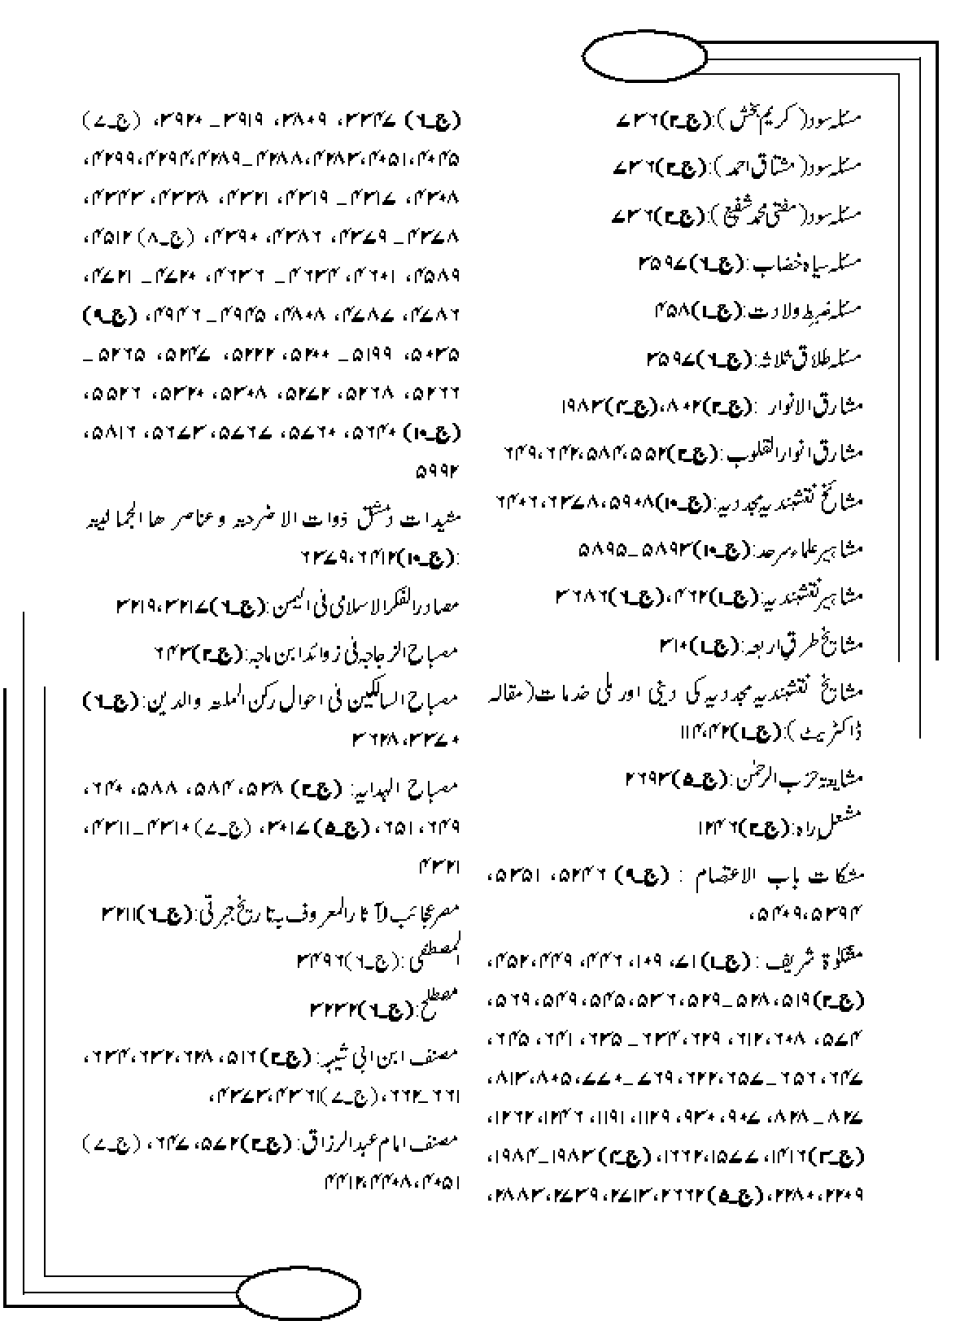 مسئلہ سود( کریم بخش ):(ج۔۲)۷۳۶
مسئلہ سود( مشتاق احمد ):(ج۔۲)۷۳۶
مسئلہ سود( مفتی محمد شفیع ):(ج۔۲)۷۳۶
مسئلہ سیاہ خضاب :(ج۔۶)۳۵۹۷
مسئلہ ضبطِ ولادت:(ج۔۱)۴۵۸
مسئلہ طلاق ثلاثہ:(ج۔۶)۳۵۹۷
مشارق الانوار :(ج۔۲)۸۰۲،(ج۔۴)۱۹۸۳
مشارق انوار القلوب:(ج۔۲)۵۵۲،۵۸۴،۶۴۲،۶۴۹
مشائخ نقشبندیہ مجددیہ:(ج۔۱۰)۵۹۰۸،۶۳۷۸،۶۴۰۶
مشاہیر علماء سرحد:(ج۔۱۰)۵۸۹۳۔۵۸۹۵
مشاہیر نقشبندیہ:(ج۔۱)۴۶۲،(ج۔۶)۳۶۸۶
مشائخ طرقِ اربعہ:(ج۔۱)۳۱۰
مشائخ نقشبندیہ مجددیہ کی دینی اور ملی خدمات( مقالہ
ڈاکٹریٹ ):(ج۔۱)۴۲،۱۱۴
مشایعۃ حزب الرحمٰن:(ج۔۵)۲۶۹۳
مشعلِ راہ:(ج۔۲)۱۲۴۶
مشکات باب الاعتصام : (ج۔۹) ۵۲۴۶، ۵۳۵۱،
۵۳۹۴،۵۴۰۹،
مشکوٰۃ شریف :(ج۔۱)۷۱، ۱۰۹، ۴۴۶، ۴۴۹، ۴۵۲،
(ج۔۲)۵۱۹، ۵۲۸۔۵۲۹، ۵۳۶، ۵۴۵، ۵۴۹، ۵۶۹،
۵۷۴، ۶۰۸، ۶۱۲، ۶۲۹، ۶۳۴۔ ۶۳۵، ۶۴۱، ۶۴۵،
۶۴۷، ۶۵۶۔۶۵۷، ۶۲۲، ۶۷۹۔۷۷۰، ۸۰۵، ۸۱۳،
۸۲۷۔۸۲۸، ۹۰۷، ۹۳۰، ۱۱۲۹، ۱۱۹۱، ۱۲۴۶، ۱۲۶۲،
(ج۔۳)۱۴۱۶، ۱۵۷۷، ۱۶۶۲، (ج۔۴)۱۹۸۳۔۱۹۸۴،
۲۲۰۹، ۲۲۸۰،(ج۔۵)۲۶۶۲، ۲۷۱۳، ۲۷۳۹، ۲۸۸۳،
(ج۔۶) ۳۳۴۷، ۳۸۰۹، ۳۹۱۹۔ ۳۹۲۰، (ج۔۷)
۴۰۴۵،۴۰۵۱،۴۲۸۳،۴۲۸۸۔۴۲۸۹،۴۲۹۴،۴۲۹۹،
۴۳۰۸، ۴۳۱۷۔ ۴۳۱۹، ۴۳۲۱، ۴۳۳۸، ۴۳۴۳،
۴۳۷۸۔ ۴۳۷۹، ۴۳۸۶، ۴۳۹۰، (ج۔۸)۴۵۱۲،
۴۵۸۹، ۴۶۰۱، ۴۶۳۴۔ ۴۶۳۶، ۴۷۲۰۔ ۴۷۲۱،
۴۷۸۶، ۴۷۸۷، ۴۸۰۸، ۴۹۴۵۔ ۴۹۴۶، (ج۔۹)
۵۰۳۵، ۵۱۹۹۔ ۵۲۰۰، ۵۲۲۲، ۵۲۴۷، ۵۲۶۵۔
۵۲۶۶، ۵۲۶۸، ۵۲۷۲، ۵۳۰۸، ۵۳۲۰، ۵۵۲۶،
(ج۔۱۰) ۵۶۴۰، ۵۷۶۰، ۵۷۶۷، ۵۶۷۳، ۵۸۱۶،
۵۹۹۲
مشیدات دمشق ذوات الاضرحۃ وعناصر ھا الجمالیۃ
:(ج۔۱۰)۶۴۱۲، ۶۳۷۹
مصادر الفکر الاسلامی فی الیمن:(ج۔۶)۳۲۱۷،۳۲۱۹
مصباح الزجاجہ فی زوائد ابن ماجہ:(ج۔۲)۶۴۳
مصباح السالکین فی احوال رکن الملۃ والدین:(ج۔۶)
۳۳۷۰،۳۶۲۸
مصباح الہدایہ: (ج۔۲) ۵۳۸، ۵۸۴، ۵۸۸، ۶۴۰،
۶۴۹، ۶۵۱،(ج۔۵)۳۰۱۷، (ج۔۷)۴۳۱۰۔۴۳۱۱،
۴۳۲۱
مصر عجائب لآثار المعروف بہ تاریخ جبرتی:(ج۔۶)۳۲۱۱
المصطفٰی:(ج۔۶)۳۴۹۶
مصطلح:(ج۔۶)۳۲۳۲
مصنف ابن ابی شیبہ:(ج۔۲)۵۱۶، ۶۲۸، ۶۳۲، ۶۳۴،
۶۶۱۔۶۶۲،(ج۔۷)۴۳۶۱، ۴۳۷۳،
مصنف امام عبدالرزاق: (ج۔۲)۵۷۲، ۶۴۷، (ج۔۷)
۴۰۵۱،۴۴۰۸،۴۴۱۲